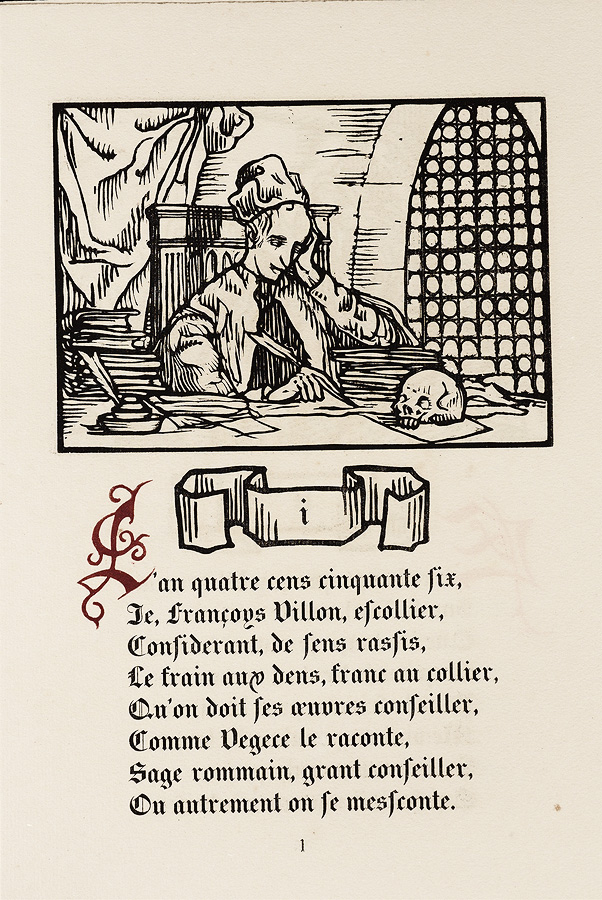 i
L'an quatre cens cinquante six,
Je, Françoys Villon, escollier,
Considerant, de sens rassis,
Le frain aux dens, franc au collier,
Qu'on doit ses œuvres conseiller,
Comme Vegece le raconte,
Sage rommain, grant conseiller,
Ou autrement on se messconte.
1